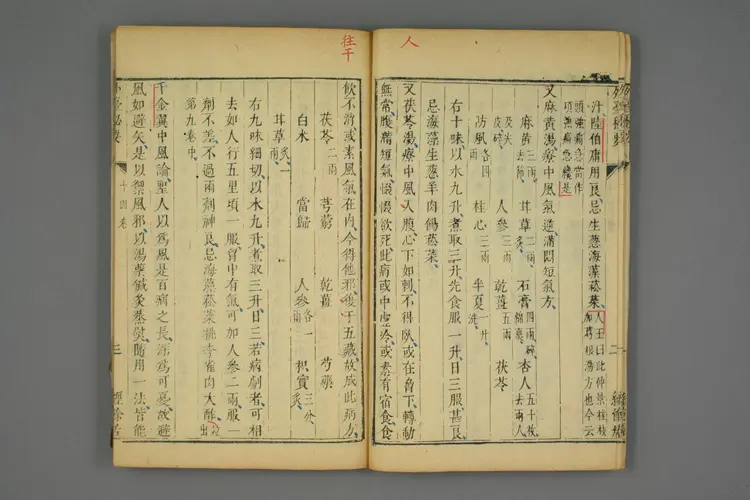 人
汁陸伯庸用良忌生葱海藻菘菜
又麻黃湯療中風氣逆滿悶短氣方
麻黃三兩去節 甘草二兩炙 石膏四兩碎綿裹 杏人五十枚去兩人
人參三兩 乾薑五兩 茯苓
防風各四兩 桂心三兩 半夏一升洗
右十味以水九升煮取三升先食服一升日三服甚良
忌海藻生葱羊肉餳菘菜
又茯苓湯療中風入腹心下如刺不得臥或在脅下轉動
無常腹滿短氣惙惙欲死此病或中虛冷或素有宿食食
往
飲不消或素風氣在內今得他邪復干五藏故成此病方
茯苓二兩 芎藭 乾薑 芍藥
白水 當歸 人參各一兩 枳實三分炙
甘草一兩炙
右九味細切以水九升煮取三升日三若病劇者可相
去如人行五里頃一服胃中有氣可加人參二兩服一
劑不差不過兩劑神良忌海藻菘菜桃李雀肉大酢
第九卷中
千金翼中風論聖人以為風是百病之長深為可憂故避
風如避矢是以禦風邪以湯藥鍼灸蒸熨隨用一法皆能
十四卷
三
經餘居